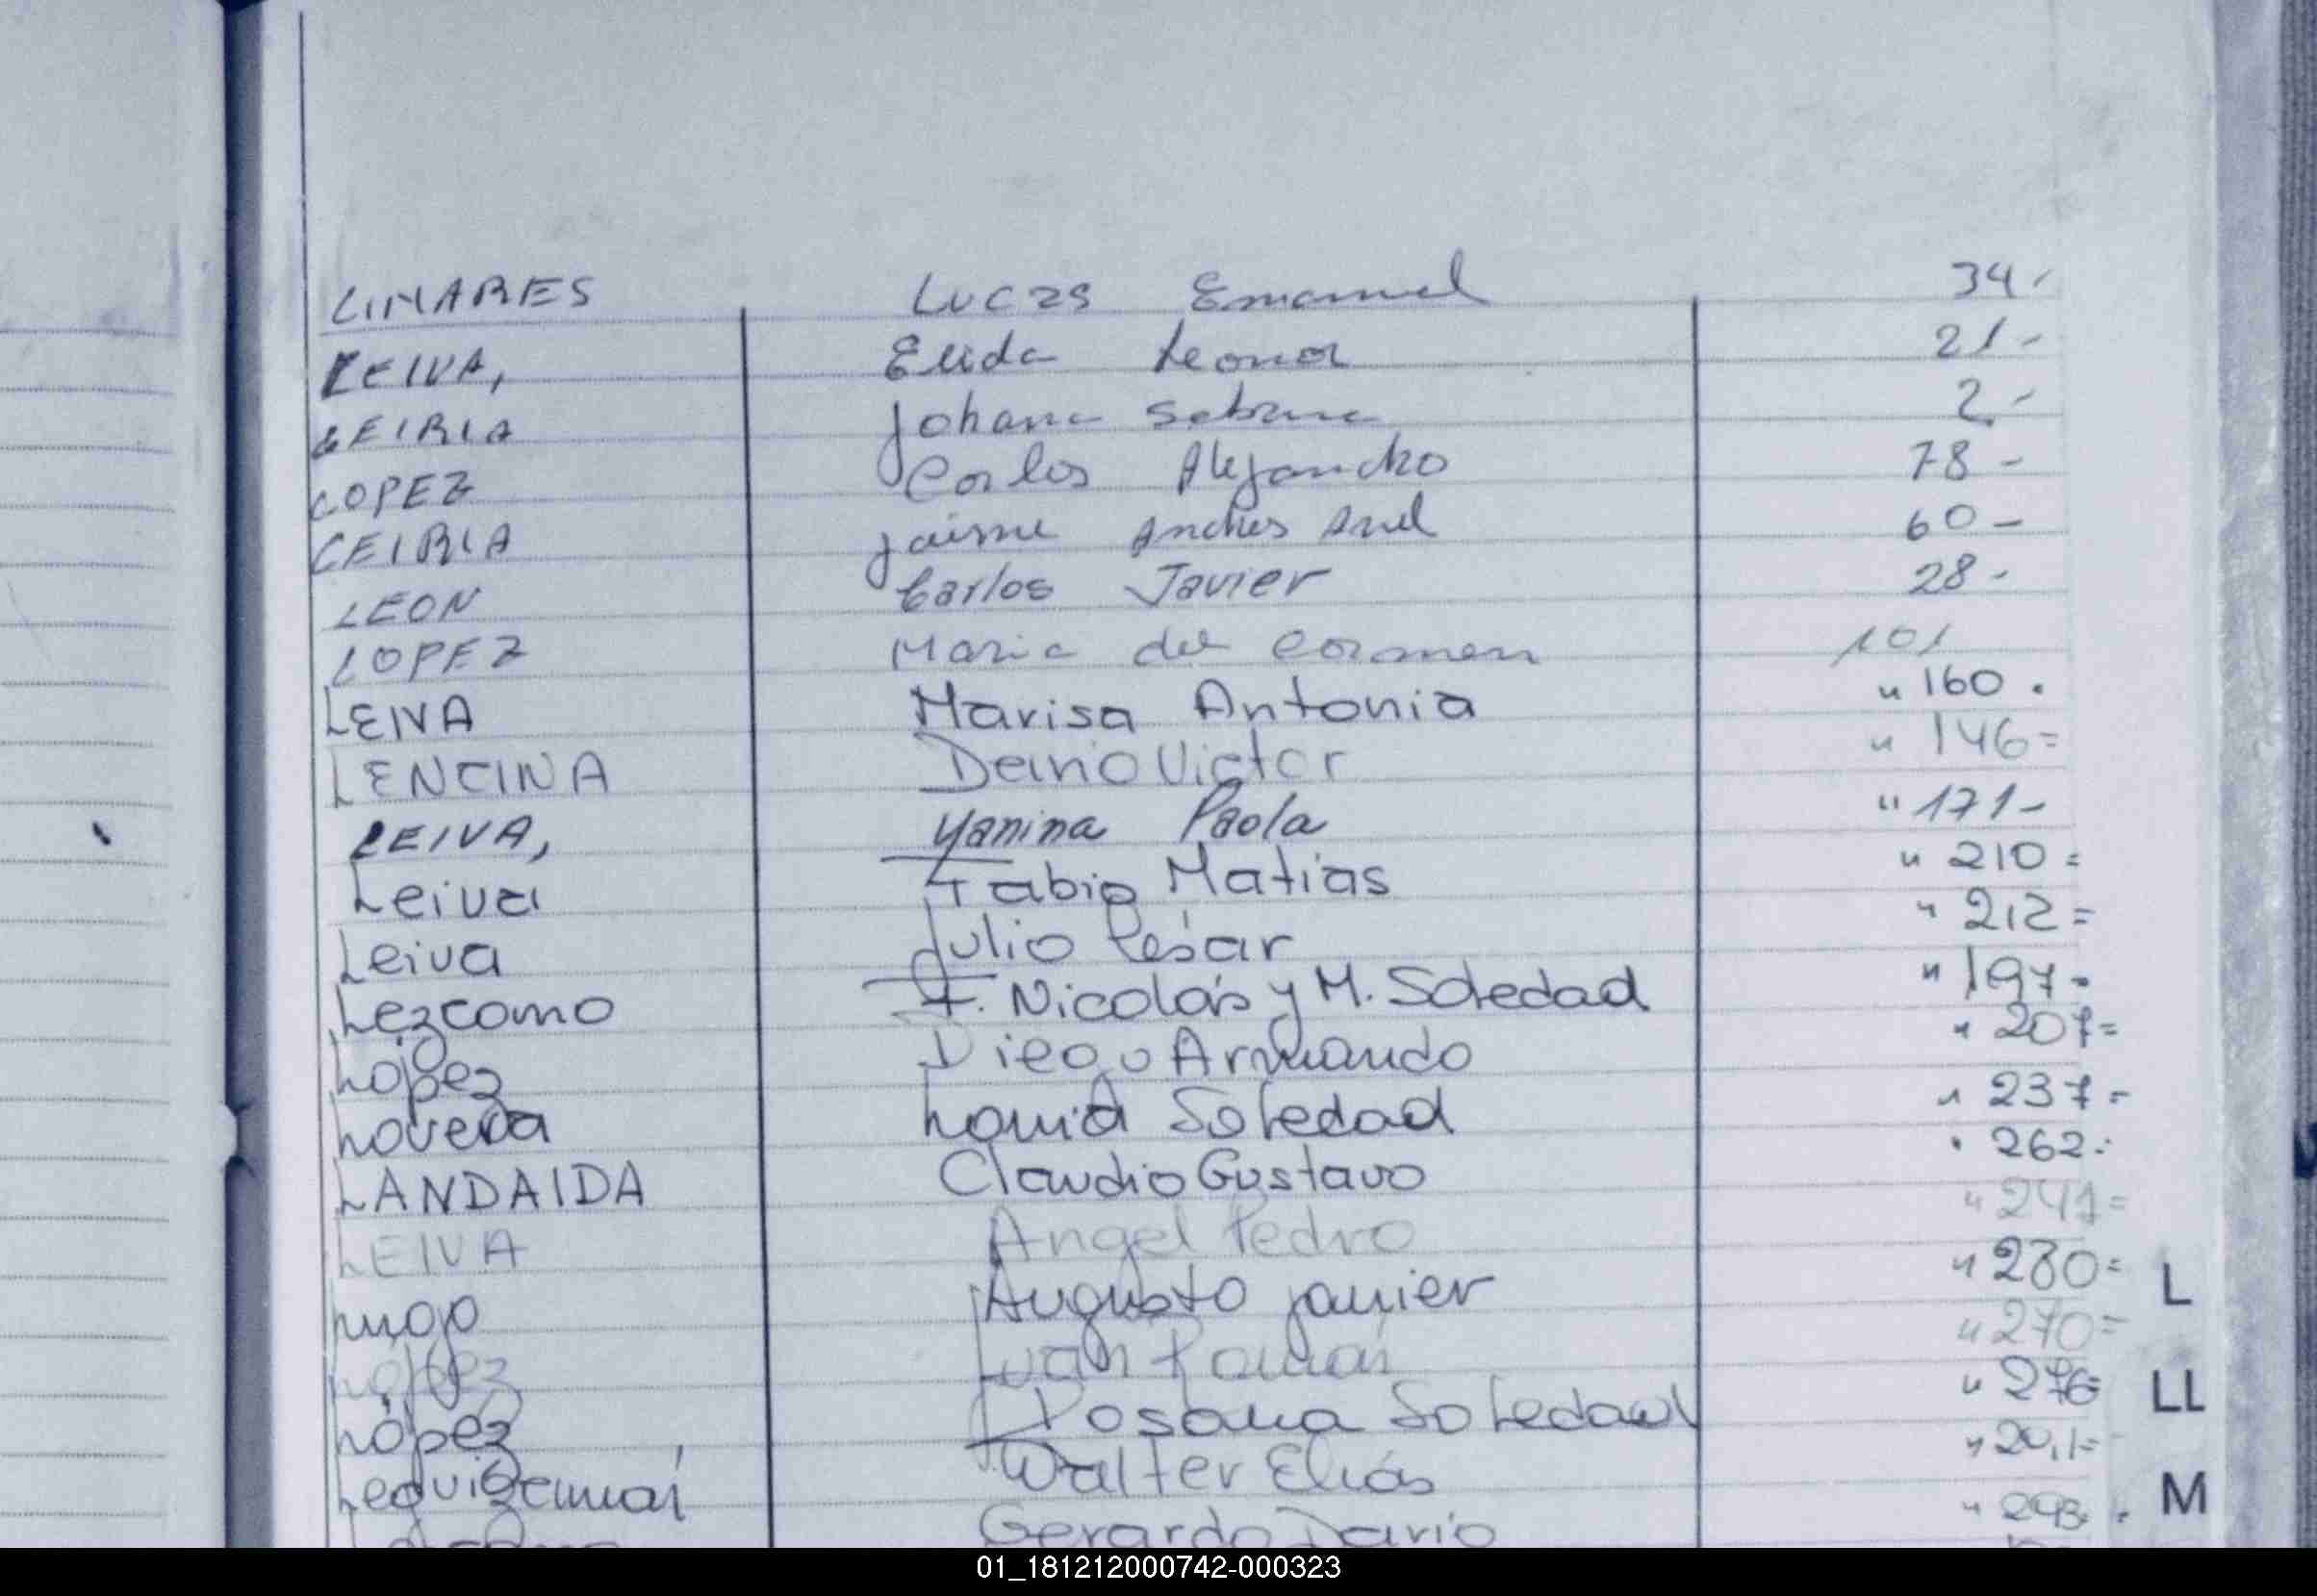 LINARES Lucas Emanuel 34-
LEIVA, Elida Leonor 21-
LEIRIA Johana Sabrina 2-
LOPEZ Carlos Alejandro 78-
LEIRIA Jaime Andres Ariel 60-
LEON Carlos Javier 28-
LOPEZ Maria del Carmen 101
LEIVA Marisa Antonia " 160.
LENCINA Victor " 146=
LEIVA, Yanina Paola " 171-
Leiva Fabio Matias " 210=
Leiva Julio César " 212=
Lezcano F. Nicolás y M. Soledad " 197=
López Diego Armando " 207=
Lovera Soledad " 237=
LANDAIDA Claudio Gustavo 262.
LEIVA Angel Pedro " 241=
Lugo Augusto Javier " 280=
López Iván Román " 270=
López Rosana Soledad " 276
Leguizamón Walter Elías
Gerardo Dario " 293
L
LL
M
01_181212000742-000323